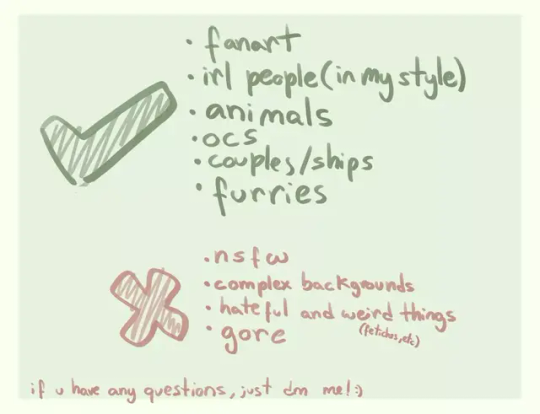 · fanart
· irl people (in my style)
· animals
· ocs
· couples/ships
· furries
· nsfw
· complex backgrounds
· hateful and weird things
(fetiches, etc)
· gore
if u have any questions, just dm me! :)